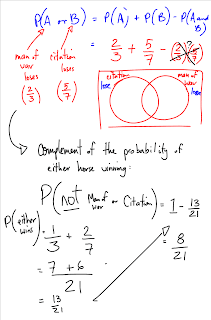 P(A or B) = P(A) + P(B) - P(A and B)
= 2/3 + 5/7 - (2/3 × 5/7)
man of war loses (2/3)
citation loses (5/7)
citation lose
man of war lose
Complement of the probability of
either horse winning:
P(not Man of war or Citation) = 1 - 13/21
= 8/21
P(either wins) = 1/3 + 2/7
= 7 + 6 / 21
= 13/21